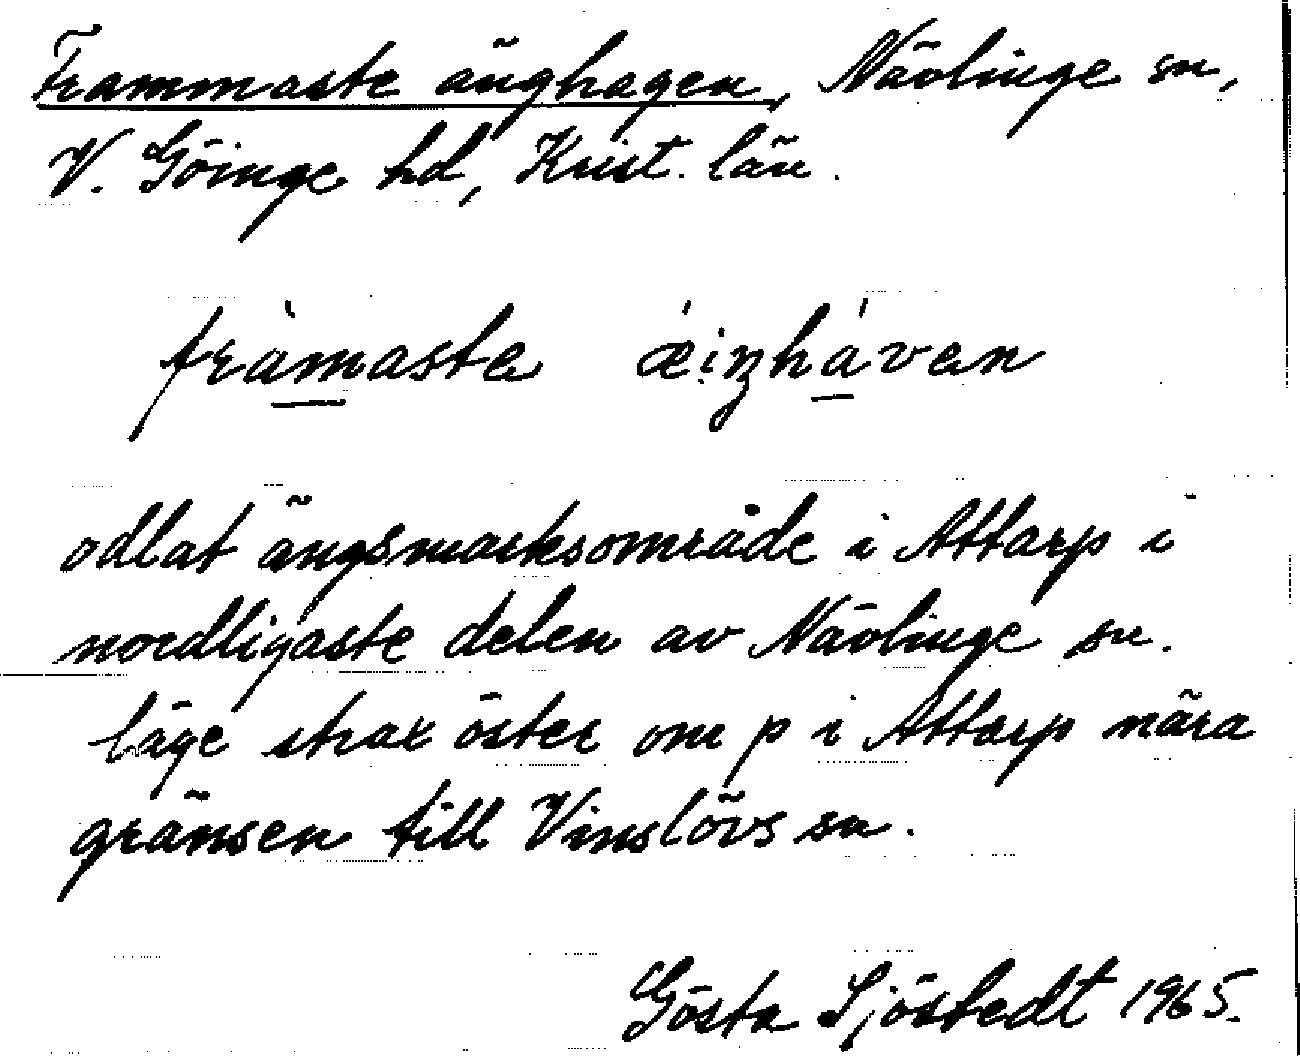 Frammaste änghagen, Nävlinge sn,
V. Göinge hd, Krist. län.
fràmaste ǽiŋháven
odlat ängsmarksområde i Attarp i
nordligaste delen av Nävlinge sn.
läge strax öster om p i Attarp nära
gränsen till Vinslövs sn.
Gösta Sjöstedt 1965.